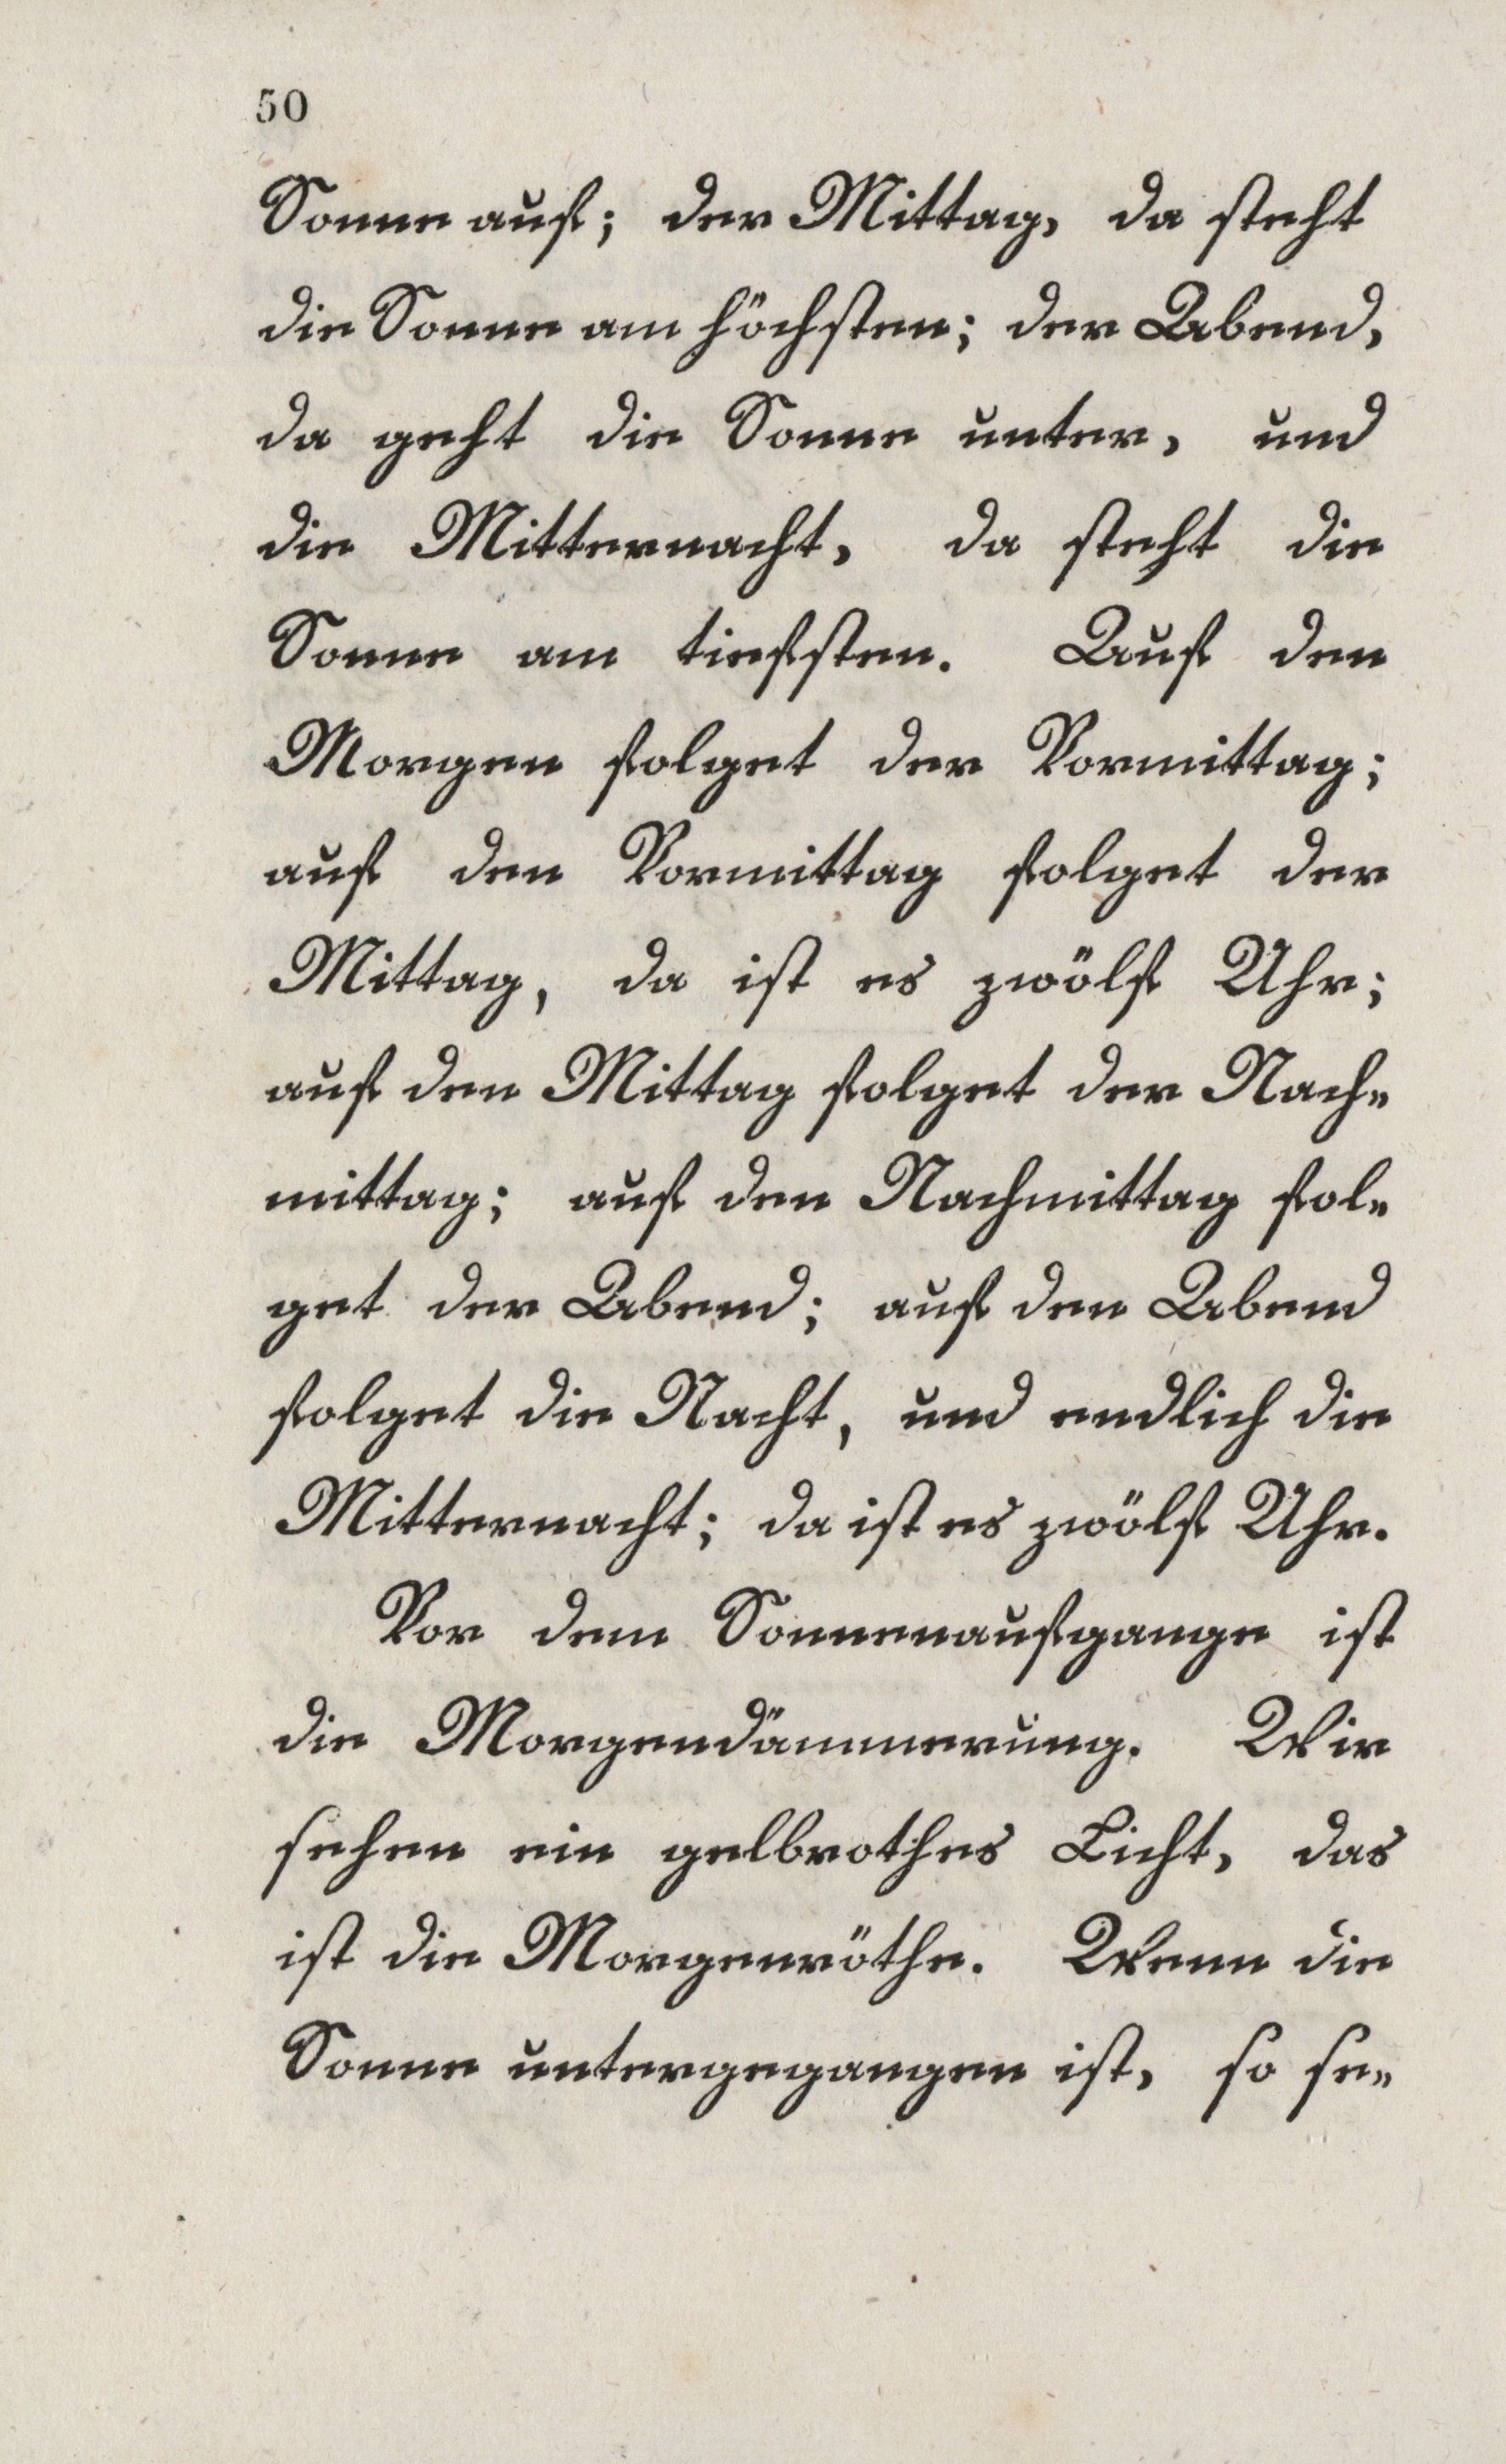 50
Sonne auf; der Mittag, da steht
die Sonne am höchsten; der Abend,
da geht die Sonne unter, und
die Mitternacht, da steht die
Sonne am tiefsten. Auf den
Morgen folget der Vormittag;
auf den Vormittag folget der
Mittag, da ist es zwölf Uhr;
auf den Mittag folget der Nach-
mittag; auf den Nachmittag fol-
get der Abend; auf den Abend
folget die Nacht, und endlich die
Mitternacht; da ist es zwölf Uhr.
Vor dem Sonnenaufgange ist
die Morgendämmerung. Wir
sehen ein gelbrothes Licht, das
ist die Morgenröthe. Wenn die
Sonne untergegangen ist, so se-